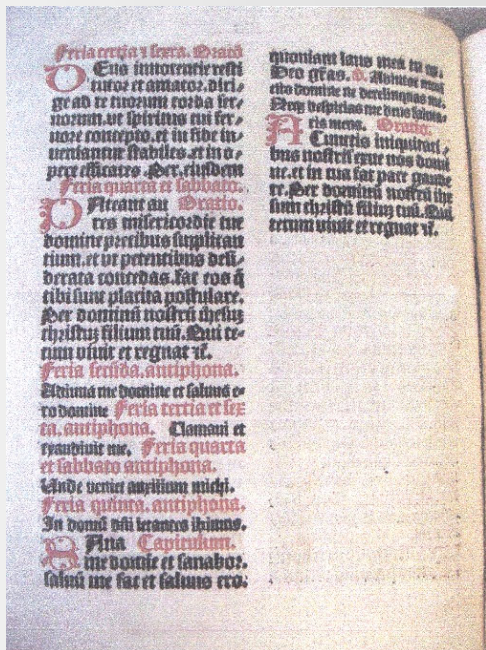 Feria tertia ⁊ sexta. Oratio
DEus innocentie resti
tutor et amator. diri-
ge ad te tuorum corda ser-
uorum. ut spiritus tui fer-
uore concepto. et in fide in-
ueniantur stabiles. et in o-
pere efficaces. Per. eiusdem
Feria quarta et sabbato.
PAteant au Oratio.
res misericordie tue
domine precibus supplican
tium. et vt petentibus desi-
derata concedas. fac eos q̄
tibi sunt placita postulare.
Per dominū nostrū ihesuȝ
christuȝ filium tuū. Qui te-
cum viuit et regnat ⁊c̄.
Feria secūda. antiphona.
Adiuua me domine et saluus e-
ro domine Feria tertia et sex
ta. antiphona. Clamaui et
exaudiuit me. Feria quarta
et sabbato antiphona.
Unde veniet auxilium michi.
Feria quinta. antiphona.
In domū dn̄i letantes ibimus.
SAna Capitulum.
me domine et sanabor.
saluū me fac et saluus ero.
quoniam laus mea tu es.
Deo gr̄as.
cito domine ne derelinquas me.
Neqȝ despicias me deus
ris meus. Oratio.
A Cunctis iniquitati-
bus nostris exue nos domi
ne. et in tua fac pace gaude
re. Per dominū nostrū ihe
sum christū filiuȝ tuū. Qui
tecum viuit et regnat ⁊c̄.